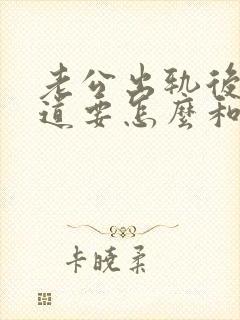 老公出轨後
道要怎麼和
卡曉柔